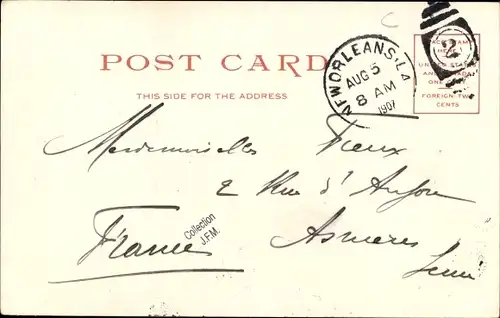 POST CARD
THIS SIDE FOR THE ADDRESS
NEW ORLEANS, LA
AUG 5
8 AM
1907
2
HERE
UNITED STATES
FOREIGN TWO
CENTS
Mesdemoiselles
2 Rue d'
France
Asnieres
Seine
Collection
J.F.M.